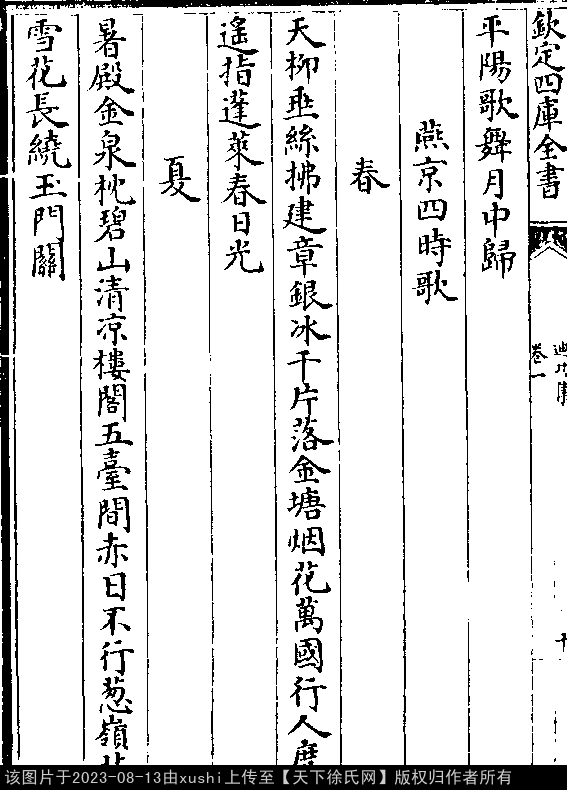 欽定四庫全書
卷一
平陽歌舞月中歸
燕京四時歌
春
天柳垂絲拂建章銀冰千片落金塘烟花萬國行人度
遙指蓬萊春日光
夏
暑殿金泉枕碧山清凉樓閣五臺間赤日不行葱嶺
雪花長繞玉門關
该图片于2023-08-13由xushi上传至【天下徐氏网】版权归作者所有